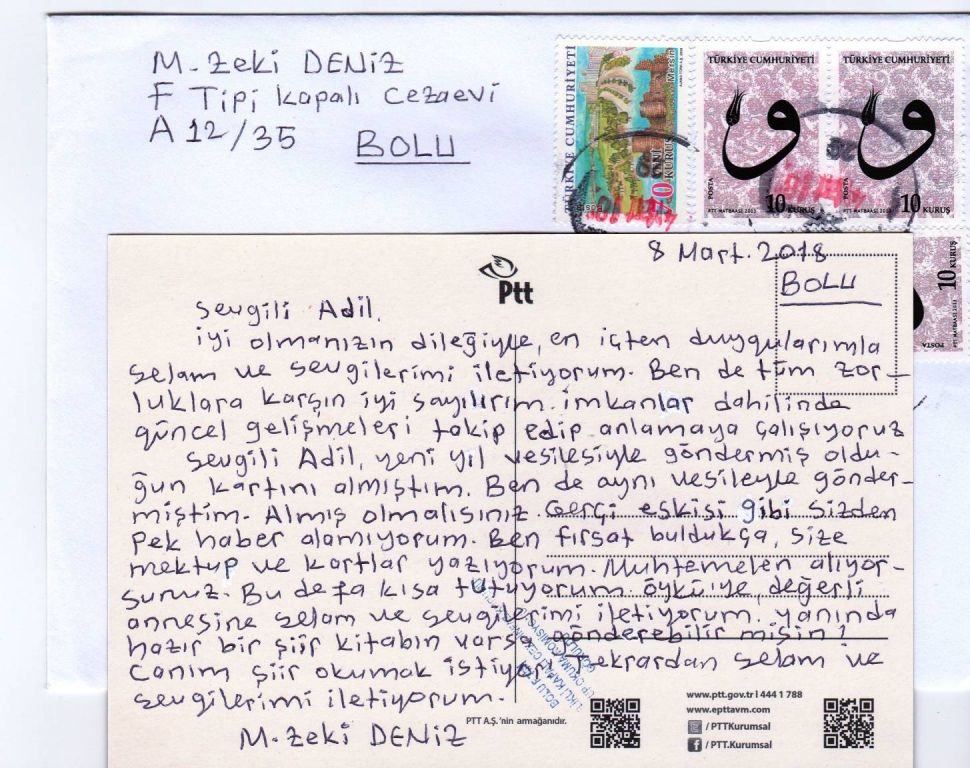 M. Zeki DENİZ
F Tipi Kapalı Cezaevi
A 12/35
BOLU
TÜRKİYE CUMHURİYETİ
Mersin
70 KURUŞ
POSTA
TÜRKİYE CUMHURİYETİ
POSTA
PTT MATBAASI 2013
10 KURUŞ
TÜRKİYE CUMHURİYETİ
POSTA
PTT MATBAASI 2013
10 KURUŞ
10 KURUŞ
PTT MATBAASI 2013
POSTA
8 Mart. 2018
BOLU
Ptt
Sevgili Adil,
iyi olmanızın dileğiyle, en içten duygularımla
selam ve sevgilerimi iletiyorum. Ben de tüm zor-
luklara karşın iyi sayılırım. imkanlar dahilinde
güncel gelişmeleri takip edip anlamaya çalışıyoruz
Sevgili Adil, yeni yıl vesilesiyle göndermiş oldu-
ğun kartını almıştım. Ben de aynı vesileyle gönder-
miştim. Almış olmalısınız. Gerçi eskisi gibi sizden
pek haber alamıyorum. Ben fırsat buldukça, size
mektup ve kartlar yazıyorum. Muhtemelen alıyor-
sunuz. Bu defa kısa tutuyorum öykü'ye, değerli
annesine selam ve sevgilerimi iletiyorum. yanında
hazır bir şiir kitabın varsa gönderebilir misin?
Canım şiir okumak istiyor. Tekrardan selam ve
sevgilerimi iletiyorum.
M. Zeki DENİZ
PTT A.Ş.'nin armağanıdır.
www.ptt.gov.tr | 444 1 788
www.epttavm.com
/PTTKurumsal
/PTT.Kurumsal